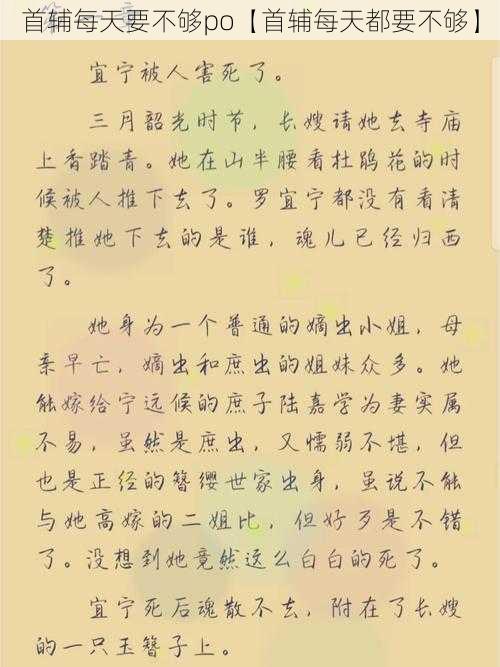 首辅每天要不够po【首辅每天都要不够】
宜宁被人害死了。
三月韶光时节，长嫂请她去寺庙
上香踏青。她在山半腰看杜鹃花的时
候被人推下去了。罗宜宁都没有看清
楚推她下去的是谁，魂儿已经归西
了。
她身为一个普通的嫡出小姐，母
亲早亡，嫡出和庶出的姐妹众多。她
能嫁给宁远候的庶子陆嘉学为妻实属
不易，虽然是庶出，又懦弱不堪，但
也是正经的簪缨世家出身，虽说不能
与她高嫁的二姐比，但好歹是不错
了。没想到她竟然这么白白的死了。
宜宁死后魂散不去，附在了长嫂
的一只玉簪子上。